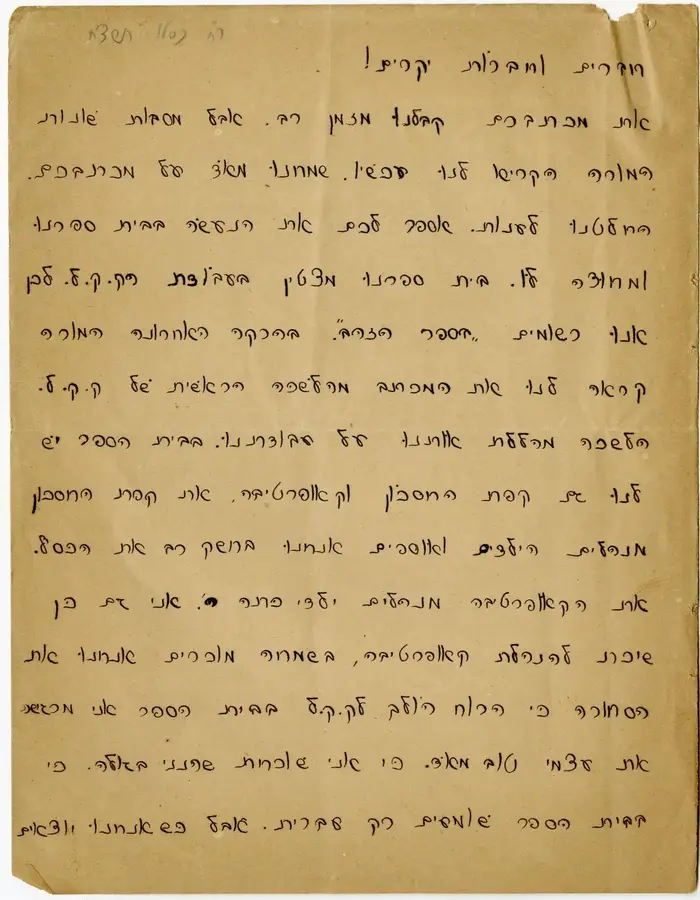 ר"ח כסלו תשצ"ח
חברים וחברות יקרים!
את מכתבכם קבלנו מזמן רב. אבל מסבות שונות
המורה הקריא לנו עכשיו. שמחנו מאד על מכתבכם.
החלטנו לענות. אספר לכם את הנעשה בבית ספרנו
ומחוצה לו. בית ספרנו מצטין בעבודת הק.ק.ל. לכן
אנו רשומים "בספר הזהב". בהרקה האחרונה המורה
קראה לנו את המכתב מהלשכה הראשית של ק.ק.ל.
הלשכה מהללת אותנו על עבודתנו. בבית הספר יש
לנו גם קפת החסכון וקאופרטיבה, את קפת החסכון
מנהלים הילדים ואוספים אנחנו בחשק רב את הכסף.
את הקאופרטיבה מנהלים ילדי כתה ה'. אני גם כן
שיכת להנהלת קאופרטיבה, בשמחה מוכרים אנחנו את
הסחורה כי הרוח הולך לק.ק.ל בבית הספר אני מרגשה
את עצמי טוב מאד. כי אני שוכחת שהנני בגולה. כי
בבית הספר שומעים רק עברית. אבל כשאנחנו יוצאים